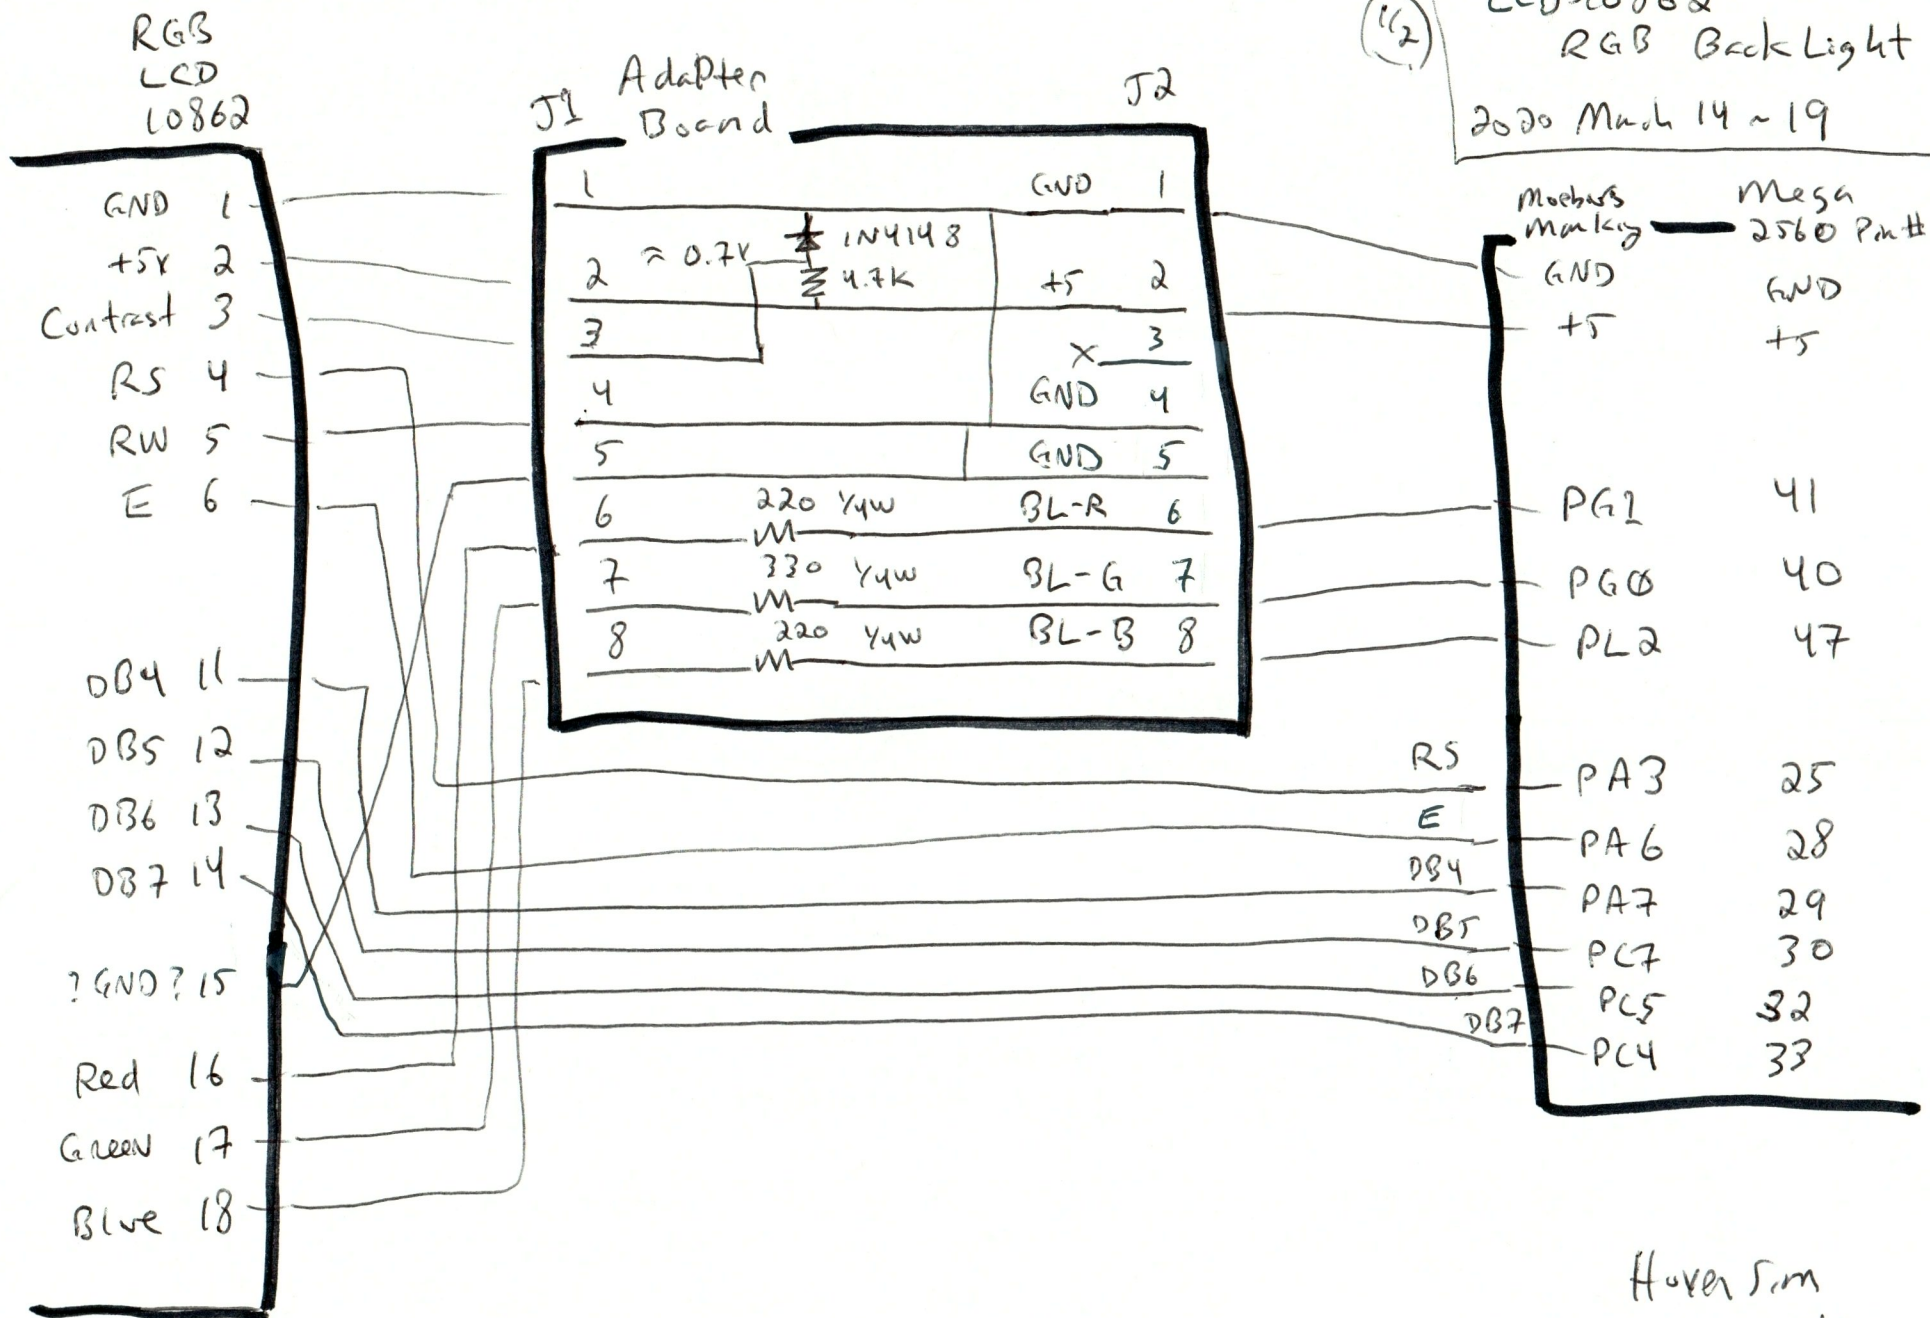 RGB
LCD
10862
GND 1
+5V 2
Contrast 3
RS 4
RW 5
E 6
DB4 11
DB5 12
DB6 13
DB7 14
?GND? 15
Red 16
Green 17
Blue 18
J1
Adapter
Board
J2
1 GND 1
≈ 0.7V 1N4148
2 4.7K +5 2
3 X 3
4 GND 4
5 GND 5
6 220 1/4W BL-R 6
7 330 1/4W BL-G 7
8 220 1/4W BL-B 8
RS
E
DB4
DB5
DB6
DB7
1/2
LCD-10862
RGB BackLight
2020 March 14 ~ 19
Mega
2560 Pin#
GND GND
+5 +5
PG1 41
PG0 40
PL2 47
PA3 25
PA6 28
PA7 29
PC7 30
PC5 32
PC4 33
Hover Sim